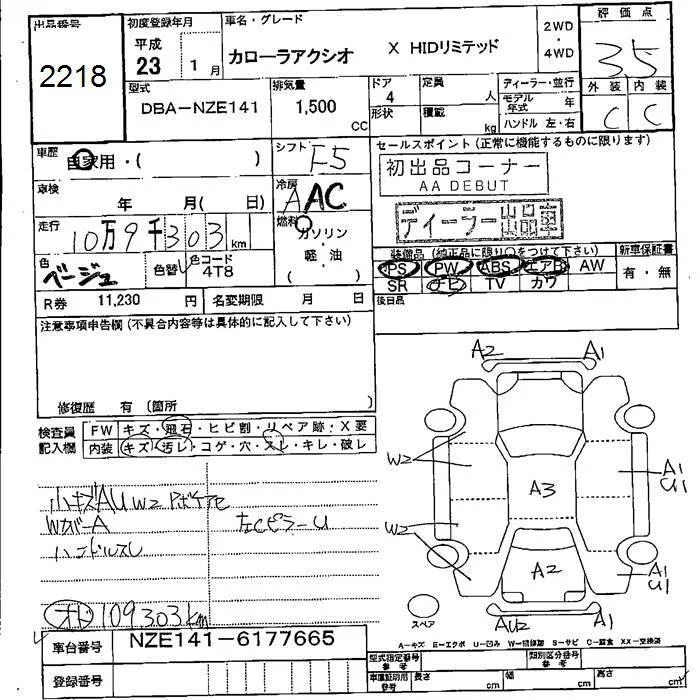 出品番号
2218
初度登録年月
平成
23 1月
車名・グレード
カローラアクシオ X HIDリミテッド
2WD
・
4WD
評価点
3.5
型式
DBA-NZE141
排気量
1,500
CC
ドア
4
形状
定員
人
積載
kg
ディーラー・並行
モデル年式 年
ハンドル 左・右
外装 内装
C C
車歴
自家用・( )
シフト
F5
セールスポイント(正常に機能するものに限ります)
初出品コーナー
AA DEBUT
ディーラー出品車
車検
年 月( 日)
冷房
AAC
走行
10万9千303km
燃料
ガソリン
・
軽油
( )
色
ベージュ
色替
色コード
4T8
装備品(純正品に限り○をつけて下さい)
新車保証書
PS PW ABS エアB AW
SR ナビ TV カワ
有・無
R券 11,230 円
名変期限 月 日
後日品
注意事項申告欄(不具合内容等は具体的に記入して下さい)
修復歴 有 (箇所 )
検査員
記入欄
FW キズ・飛石・ヒビ割・リペア跡・X要
内装 キズ・汚レ・コゲ・穴・スレ・キレ・破レ
小キズAU W2
WカバーA
ハンドルスレ
左Cピラー U
オド 109303km
A2 A1
W2
A3
A1
U1
W2
A2
A1
U1
スペア
AU2 A1
A-キズ E-エクボ U-凹み W-補修跡 S-サビ C-腐食 XX-交換済
車台番号
NZE141-6177665
登録番号
型式指定番号
参考
類別区分番号
参考
車庫証明用
参考
長さ cm
幅 cm
高さ cm